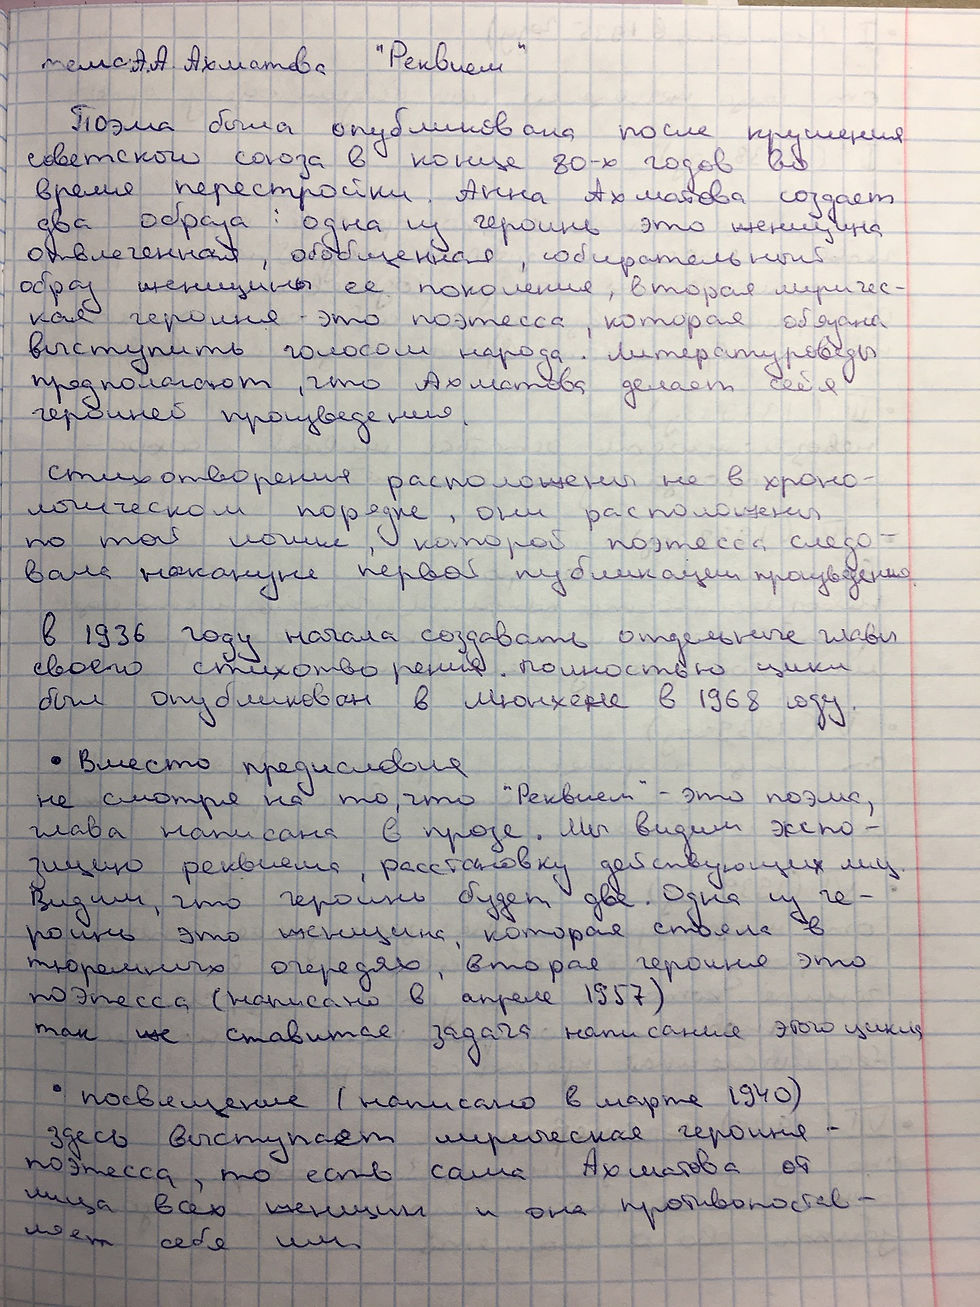 тема: А.А Ахматова "Реквием"
Поэма была опубликована после крушения
советского союза в конце 80-х годов во
время перестройки. Анна Ахматова создает
два образа: одна из героинь это женщина
отвлеченная, обобщенная, собирательный
образ женщины ее поколения, вторая лиричес-
кая героиня - это поэтесса, которая обязана
выступить голосом народа. Литературоведы
предполагают, что Ахматова делает себя
героиней произведения.
Стихотворения расположены не в хроно-
логическом порядке, они расположены
по той логике, которой поэтесса следо-
вала накануне первой публикации произведения.
В 1936 году начала создавать отдельные главы
своего стихотворения. полностью цикл
был опубликован в Мюнхене в 1968 оду.
• Вместо предисловия
не смотря на то, что "Реквием" - это поэма,
глава написана в прозе. Мы видим экспо-
зицию реквиема, расстановку действующих лиц.
Видим, что героинь будет две. Одна из ге-
роинь это женщина, которая стояла в
тюремных очередях, вторая героиня это
поэтесса (написано в апреле 1957)
так же ставится задача написания этого цикла
• посвящение (написано в марте 1940)
здесь выступает лирическая героиня -
поэтесса, то есть сама Ахматова от
лица всех женщин и она противопостав-
ляет себя им.